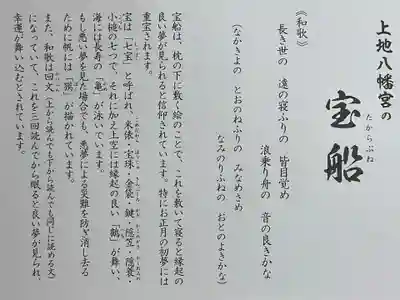 上地八幡宮の
宝船
たからぶね
《和歌》
長き世の 遠の寝ふりの 皆目覚め
浪乗り舟の 音の良きかな
(なかきよの とおのねふりの みなめさめ
なみのりふねの おとのよきかな)
宝船は、枕の下に敷く絵のことで、これを敷いて寝ると縁起の
良い夢が見られると信仰されています。特にお正月の初夢には
重宝されます。
宝は「七宝」と呼ばれ、米俵・宝珠・金袋・鍵・隠笠・隠蓑・
小槌の七つで、それに加え上空には縁起の良い「鶴」が舞い、
海には長寿の「亀」が泳いでいます。
もし悪い夢を見た場合でも、悪夢による災難を防ぎ消し去る
ために帆には「獏」が描かれています。
また、和歌は回文(上から読んでも下から読んでも同じに読める文)
になっていて、これを三回読んでから眠ると良い夢が見られ、
幸運が舞い込むとされています。